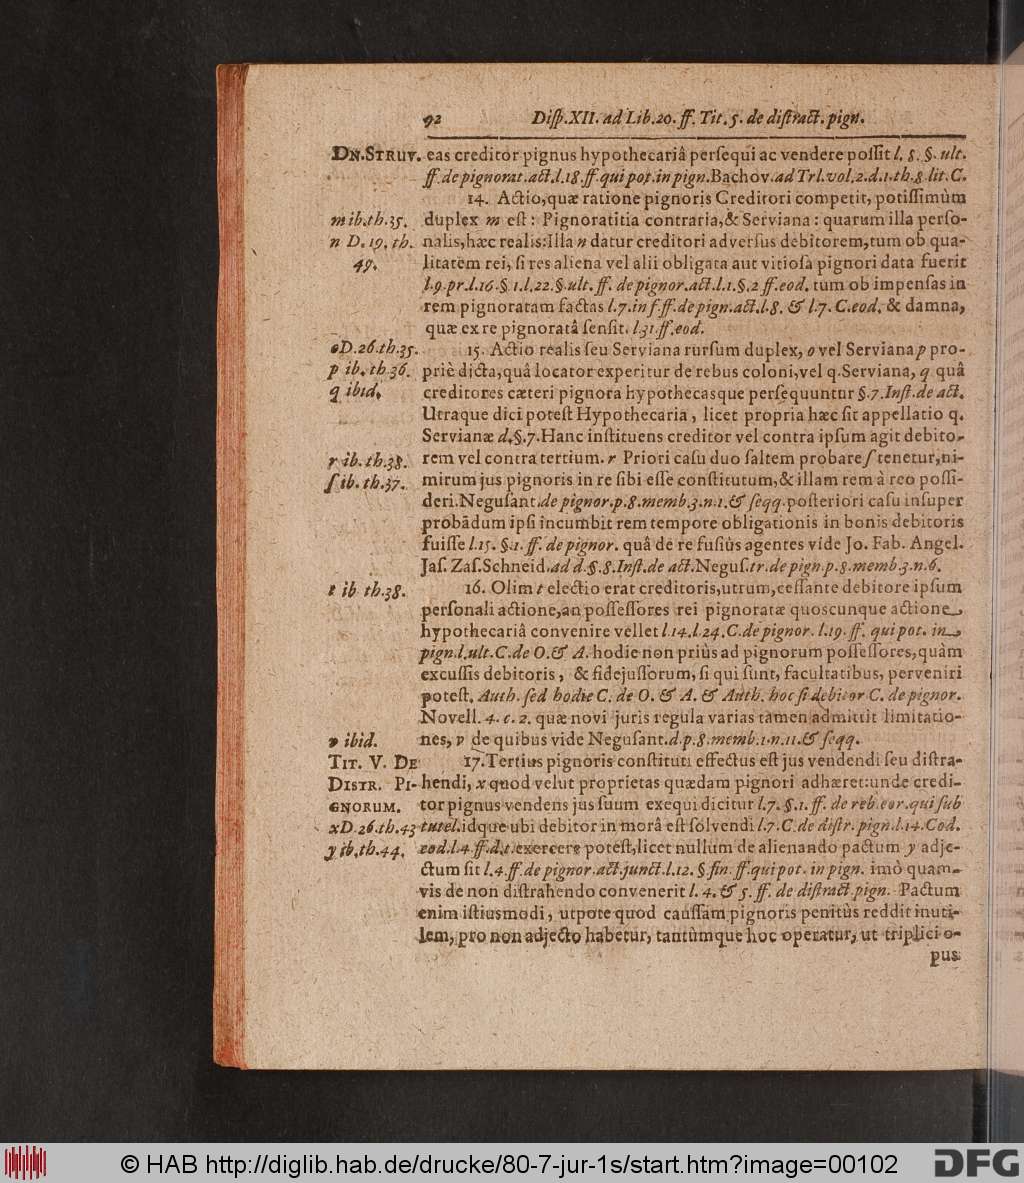 92 Diſp. XII. ad Lib. 20. ff. Tit. 5. de diſtract. pign.
DN. STRUV. eas creditor pignus hypothecariâ perſequi ac vendere poſſit l. 8. §. ult.
ff. de pignorat. act. l. 18. ff. qui pot. in pign. Bachov. ad Trl. vol. 2. d. 1. th. 8 lit. C.
14. Actio, quæ ratione pignoris Creditori competit, potiſſimùm
m ib. th. 35. duplex m eſt: Pignoratitia contraria, & Serviana: quarum illa perſo-
n D. 19. th. nalis, hæc realis: Illa n datur creditori adverſus debitorem, tum ob qua-
49. litatem rei, ſi res aliena vel alii obligata aut vitioſa pignori data fuerit
l. 9. pr. l. 16. §. 1. l. 22. §. ult. ff. de pignor. act. l. 1. §. 2 ff. eod. tum ob impenſas in
rem pignoratam factas l. 7. in f. ff. de pign. act. l. 8. & l. 7. C. eod. & damna,
quæ ex re pignoratâ ſenſit. l. 31. ff. eod.
o D. 26. th. 35. 15. Actio realis ſeu Serviana rurſum duplex, o vel Serviana p pro-
p ib. th. 36. priè dicta, quâ locator experitur de rebus coloni, vel q. Serviana, q quâ
q ibid. creditores cæteri pignora hypothecasque perſequuntur §. 7. Inſt. de act.
Utraque dici poteſt Hypothecaria, licet propria hæc ſit appellatio q.
Servianæ d. §. 7. Hanc inſtituens creditor vel contra ipſum agit debito-
r ib. th. 38. rem vel contra tertium. r Priori caſu duo ſaltem probare ſ tenetur, ni-
ſ ib. th. 37. mirum jus pignoris in re ſibi eſſe conſtitutum, & illam rem à reo poſſi-
deri. Neguſant. de pignor. p. 8. memb. 3. n. 1. & ſeqq. poſteriori caſu inſuper
probãdum ipſi incumbit rem tempore obligationis in bonis debitoris
fuiſſe l. 15. §. 1. ff. de pignor. quâ de re fuſiùs agentes vide Jo. Fab. Angel.
Jaſ. Zaſ. Schneid. ad d. §. 8. Inſt. de act. Neguſ. tr. de pign. p. 8. memb. 3. n. 6.
t ib th. 38. 16. Olim t electio erat creditoris, utrum, ceſſante debitore ipſum
perſonali actione, an poſſeſſores rei pignoratæ quoscunque actione
hypothecariâ convenire vellet l. 14. l. 24. C. de pignor. l. 19. ff. qui pot. in
pign. l. ult. C. de O. & A. hodie non priùs ad pignorum poſſeſſores, quàm
excuſſis debitoris, & fidejuſſorum, ſi qui ſunt, facultatibus, perveniri
poteſt. Auth. ſed hodie C. de O. & A. & Auth. hoc ſi debitor C. de pignor.
Novell. 4. c. 2. quæ novi juris regula varias tamen admittit limitatio-
v ibid. nes, v de quibus vide Neguſant. d. p. 8. memb. 1. n. 11. & ſeqq.
TIT. V. DE 17. Tertius pignoris conſtituti effectus eſt jus vendendi ſeu diſtra-
DISTR. PI- hendi, x quod velut proprietas quædam pignori adhæret: unde credi-
GNORUM. tor pignus vendens jus ſuum exequi dicitur l. 7. §. 1. ff. de reb. eor. qui ſub
x D. 26. th. 43 tutel. idque ubi debitor in morâ eſt ſolvendi l. 7. C. de diſtr. pign. l. 14. Cod.
y ib. th. 44. eod. l. 4. ff. d. t. exercere poteſt, licet nullum de alienando pactum y adje-
ctum ſit l. 4. ff. de pignor. act. junct. l. 12. §. fin. ff. qui pot. in pign. imò quam-
vis de non diſtrahendo convenerit l. 4. & 5. ff. de diſtract. pign. Pactum
enim iſtiusmodi, utpote quod cauſſam pignoris penitùs reddit inuti-
lem, pro non adjecto habetur, tantùmque hoc operatur, ut triplici o-
pus
© HAB http://diglib.hab.de/drucke/80-7-jur-1s/start.htm?image=00102
DFG